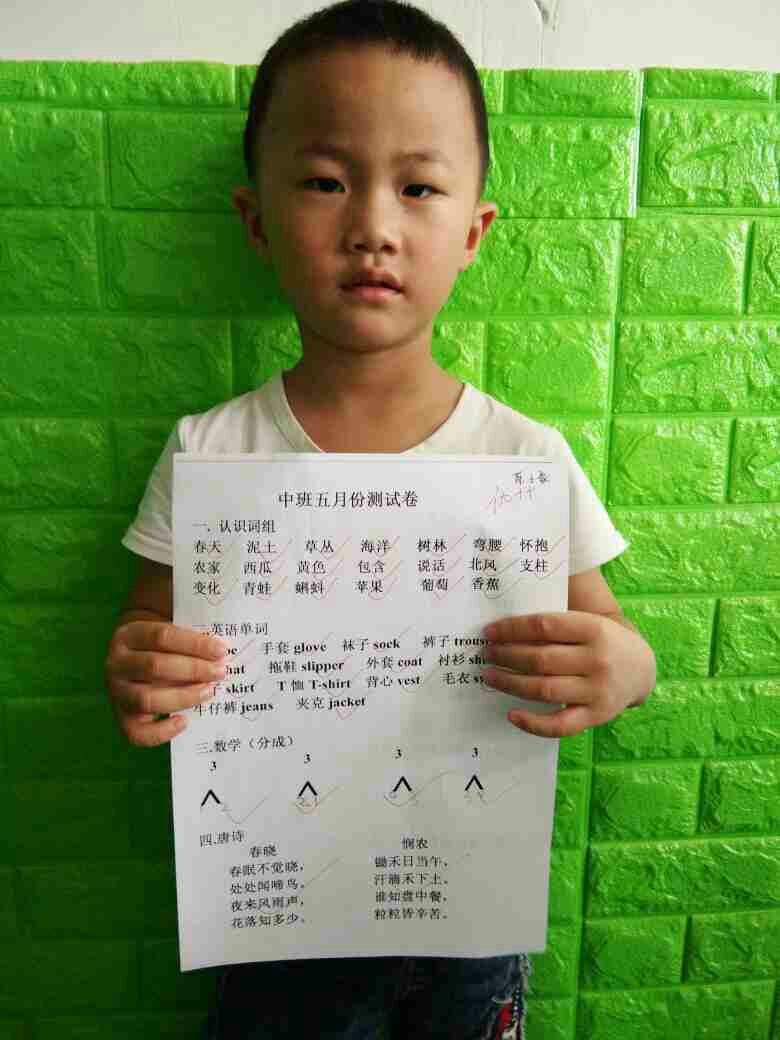 中班五月份测试卷
优++
一. 认识词组
春天 泥土 草丛 海洋 树林 弯腰 怀抱
农家 西瓜 黄色 包含 说话 北风 支柱
变化 青蛙 蝌蚪 苹果 葡萄 香蕉
英语单词
手套 glove 袜子 sock 裤子 trous
hat 拖鞋 slipper 外套 coat 衬衫 sh
skirt T 恤 T-shirt 背心 vest 毛衣 sw
牛仔裤 jeans 夹克 jacket
三.数学（分成）
3 3 3 3
四.唐诗
春晓
春眠不觉晓，
处处闻啼鸟。
夜来风雨声，
花落知多少。
悯农
锄禾日当午，
汗滴禾下土。
谁知盘中餐，
粒粒皆辛苦。